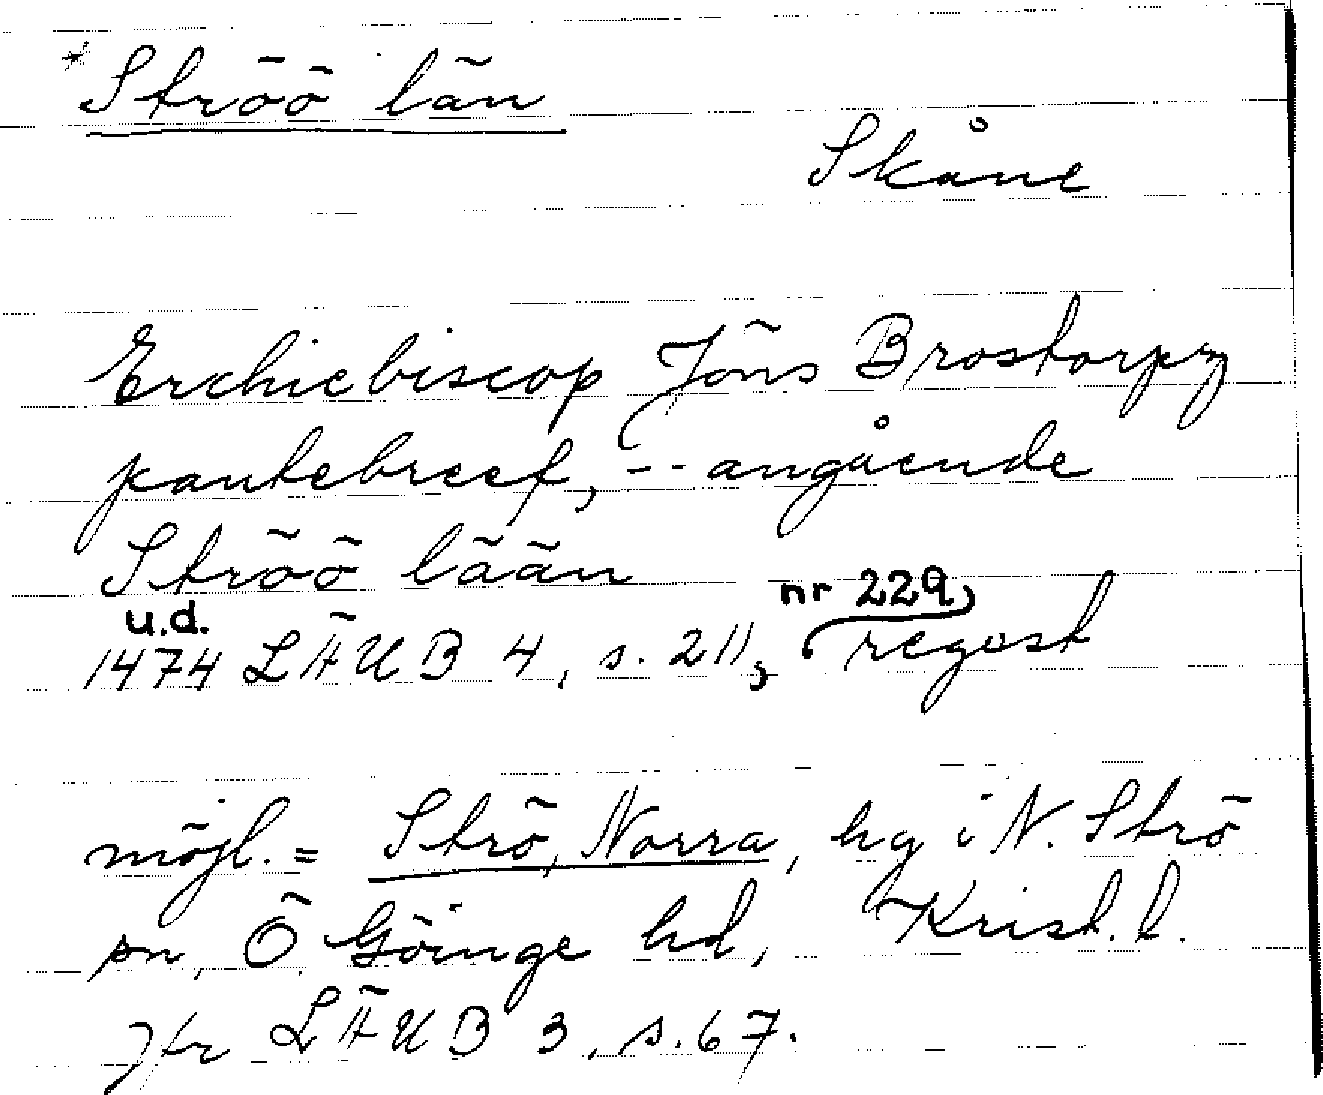 * Ströö län
Skåne
Erchiebiscop Jöns Brostorpz
pantebreef, -- angående
Ströö lään
u.d. nr 229,
1474 LÄUB 4, s. 211, regest
möjl. = Strö, Norra, by i N. Strö
sn, Ö Göinge hd, Krist. l.
Jfr LÄUB 3, s. 67.